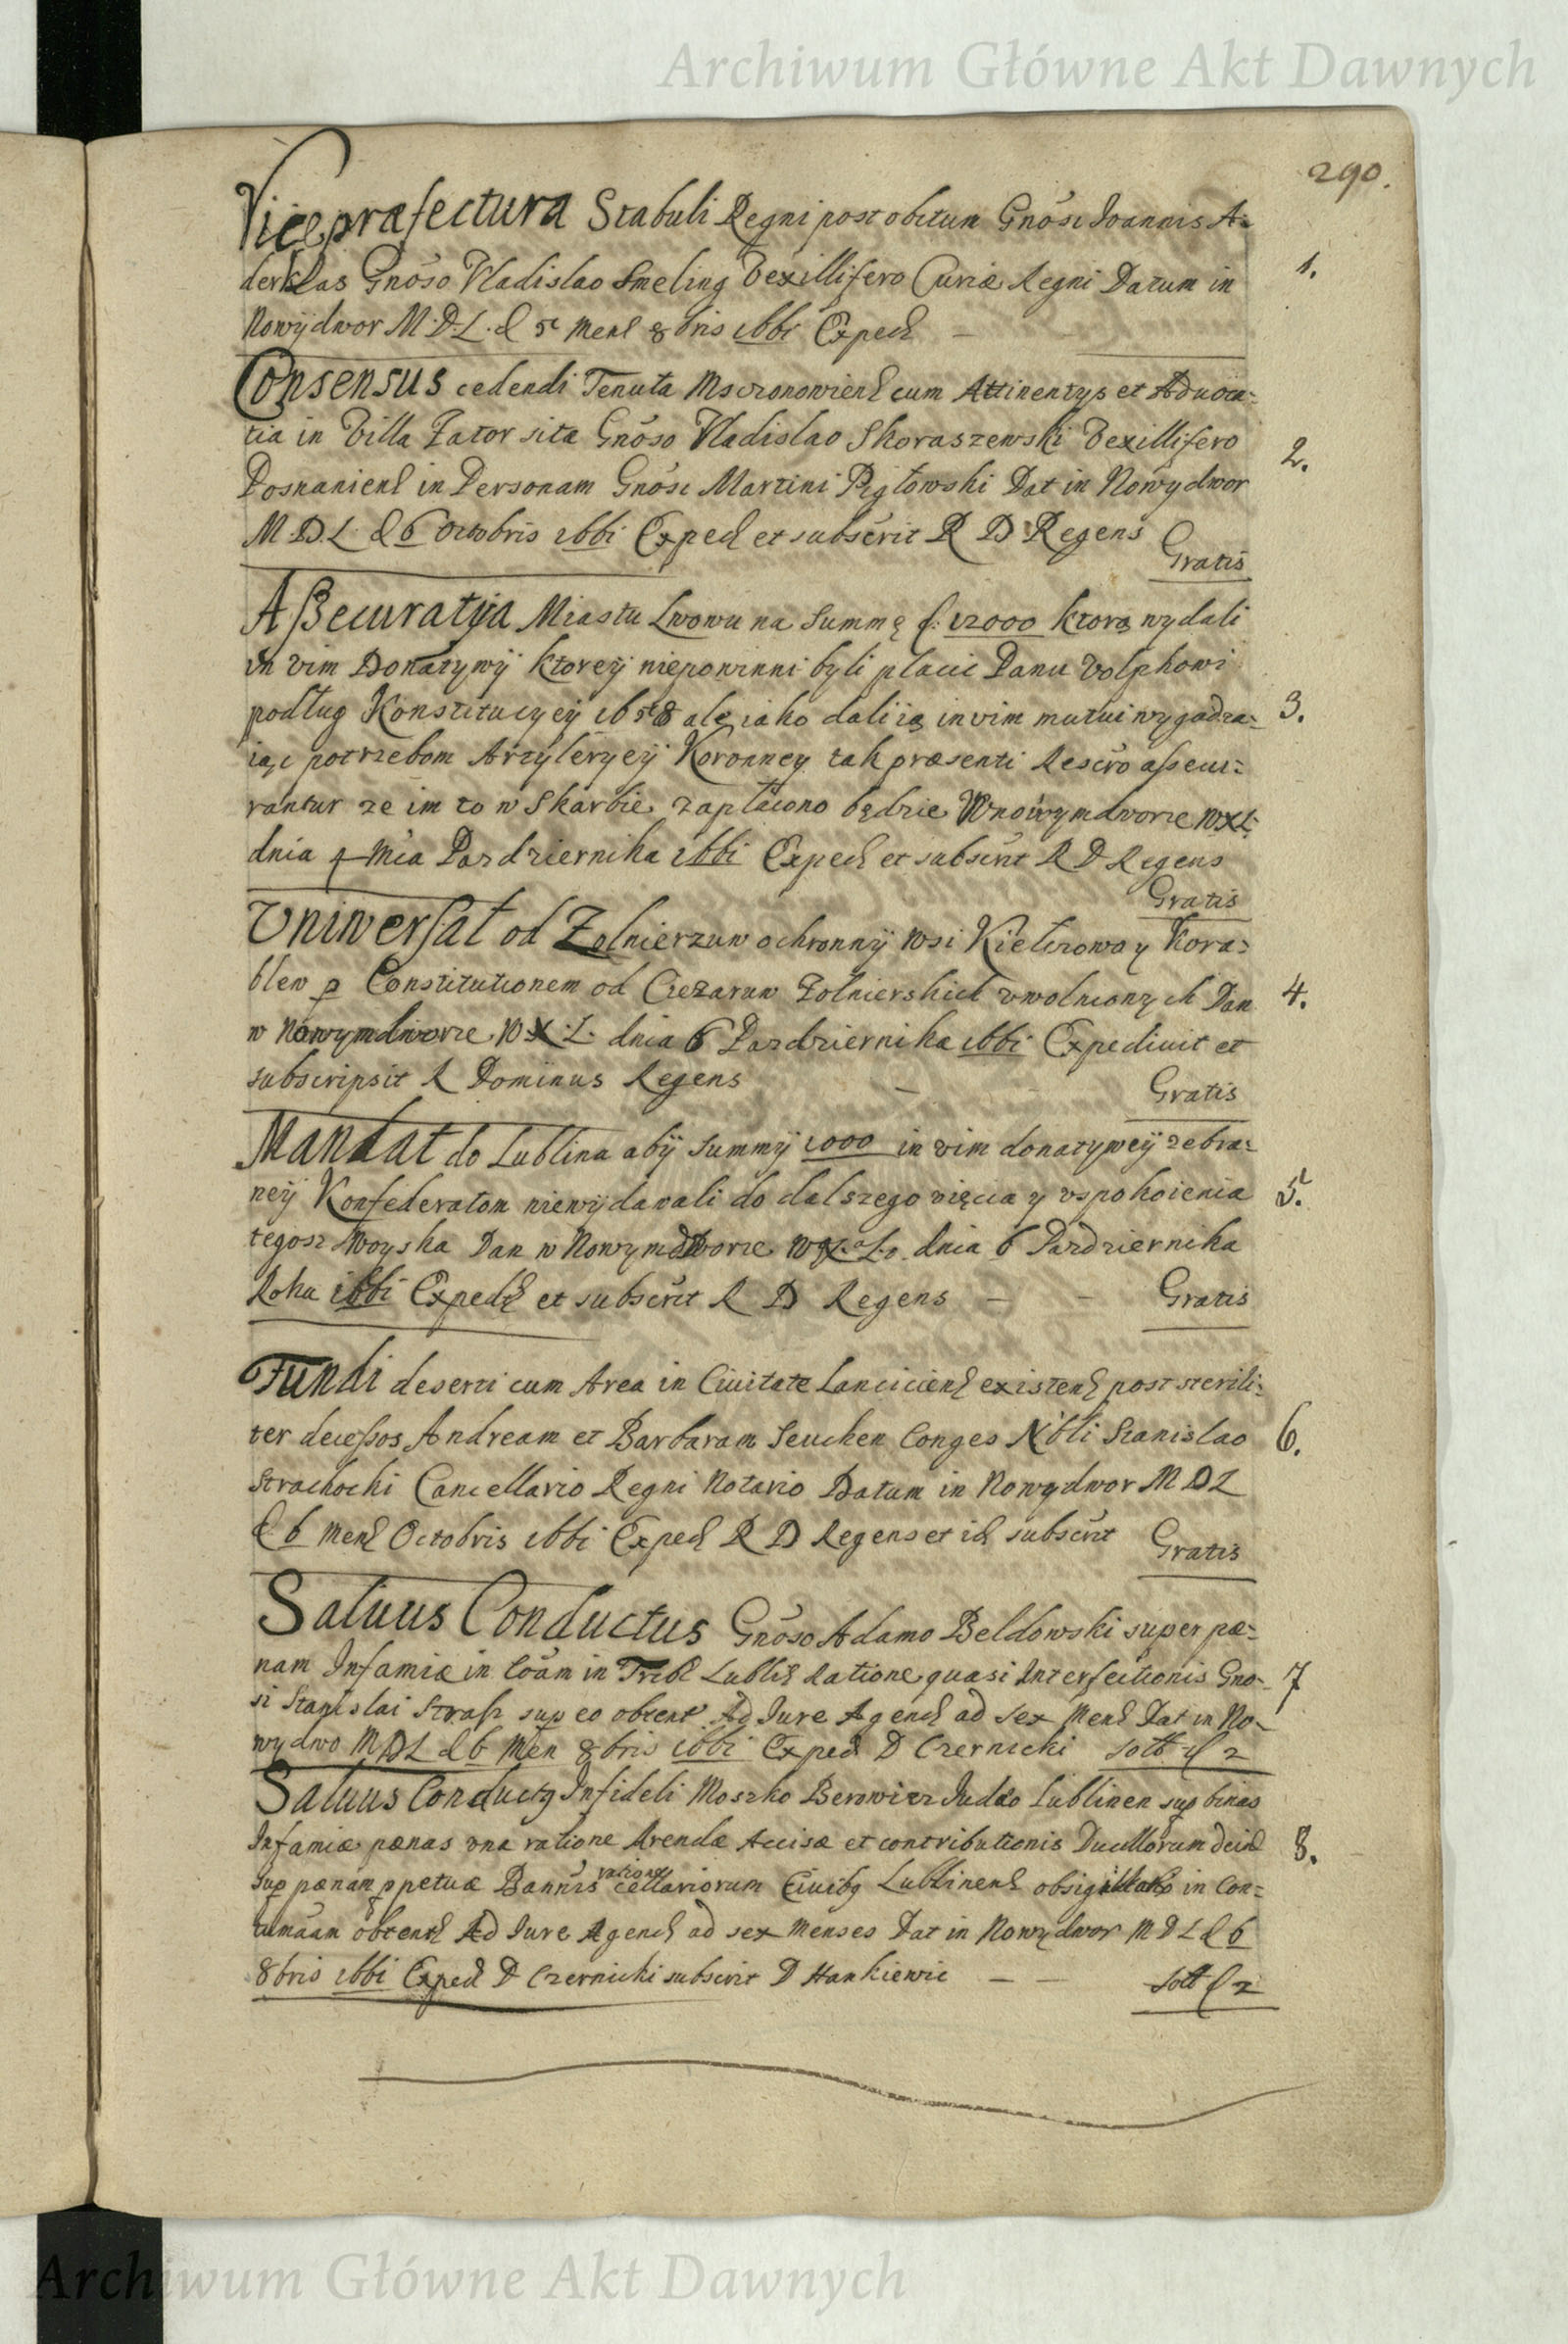 Archiwum Główne Akt Dawnych
290.
Vicepræfectura Stabuli Regni post obitum Gnosi Ioannis A=
derklas Gnoso Vladislao Smeling Vexillifero Curiæ Regni Datum in 1.
Nowydwor M. D. L. d 5 Mens 8bris 1661 Exped
Consensus cedendi Tenuta Mscronowiens cum Attinentys et Aduoca=
tia in Villa Zator sita Gnoso Vladislao Skoraszewski Vexillifero 2.
Posnaniens in Personam Gnosi Martini Piglowski Dat in Nowydwor
M D L d 6 Octobris 1661 Exped et subscrit R D Regens
Gratis
Assecuratyia Miastu Lwowu na Summę f. 12000 ktorą wydali
in vim Donatywy ktorey niepowinni byli płacić Panu Volphowi
podług Konstitucyey 1658 ale iako dali ią in vim mutui wygadza= 3.
iąc potrzebom Artyleryey Koronney tak præsenti Rescro assecu=
rantur ze im to w Skarbie zapłacono będzie Wnowymdworze WXL
dnia 4 Mca Pazdziernika 1661 Exped et subscrit R D Regens
Gratis
Vniwersał od Zolnierzuw ochronny Wsi Kielczowa y Kora=
blew p Constitutionem od Cięzaruw Zołnierskich vwolnionych Dan 4.
w Nowymdworze W X L dnia 6 Pazdziernika 1661 Expediuit et
subscripsit R Dominus Regens
Gratis
Mandat do Lublina aby Summy 1000 in vim donatywey zebra=
ney Konfederatom niewydawali do dalszego vięcia y vspokoienia 5.
tegosz Woyska Dan w Nowymdworze W X. L. dnia 6 Pazdziernika
Roku 1661 Exped et subscrit R D Regens Gratis
Fundi deserti cum Area in Ciuitate Lanciciens existens post sterili=
ter decessos Andream et Barbaram Seuchen Conges Nbli Stanislao 6.
Strachocki Cancellario Regni Notario Datum in Nowydwor M D L
d 6 Mens Octobris 1661 Exped R D Regens et id subscrit Gratis
Saluus Conductus Gnoso Adamo Beldowski super pæ=
nam Infamiæ in Coam in Trib Lublin Ratione quasi Interfectionis Gno= 7
si Stanislai Strasz sup eo obtent Ad Iure Agend ad sex Mens Dat in No=
wydwo MDL d 6 Men 8bris 1661 Exped D Czernicki Solt f 2
Saluus Conductq Infideli Moszko Berowicz Iudæo Lublinen sup binas
Infamiæ pænas vna ratione Arendæ Accisæ et contributionis Ducillorum deind 8.
sup pænam ppetuæ Bannis ratione cellariorum Ciuibq Lublinens obsigillato in Con=
tumaam obtents Ad Iure Agend ad sex Menses Dat in Nowydwor M D L d 6
8bris 1661 Exped D Czernicki subscrit D Hankiewic Solt f 2
Archiwum Główne Akt Dawnych